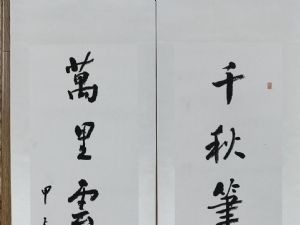 千秋筆
萬里雲
甲